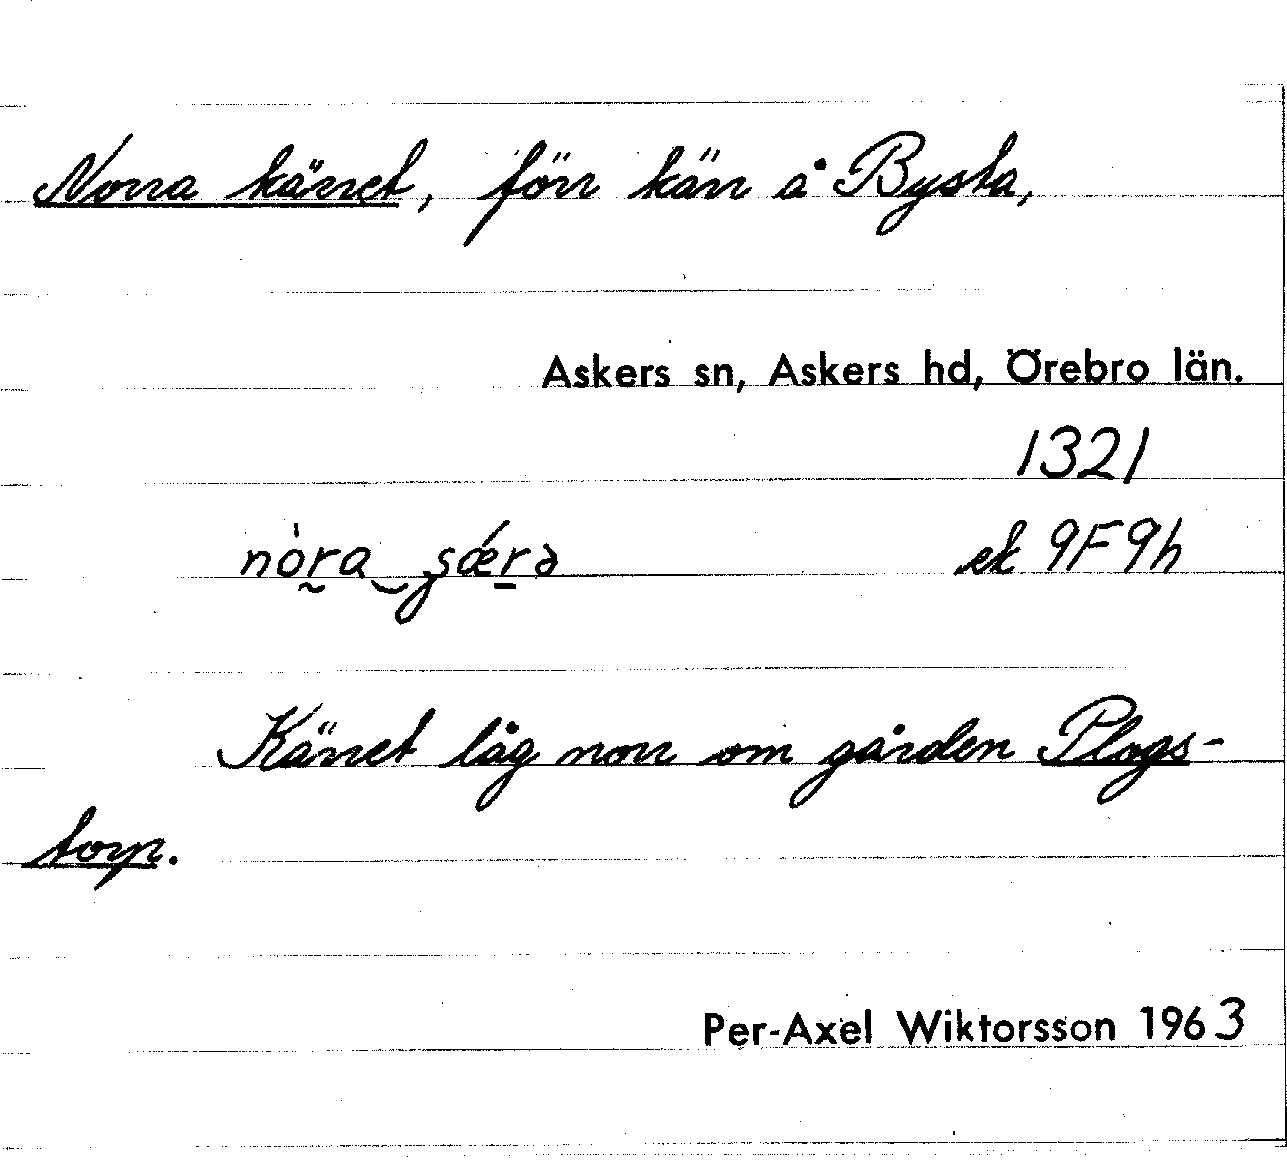 Norra kärret, förr kärr å Bysta,
Askers sn, Askers hd, Örebro län.
1321
ek 9F9h
Kärret låg norr om gården Plogs-
torp.
Per-Axel Wiktorsson 1963